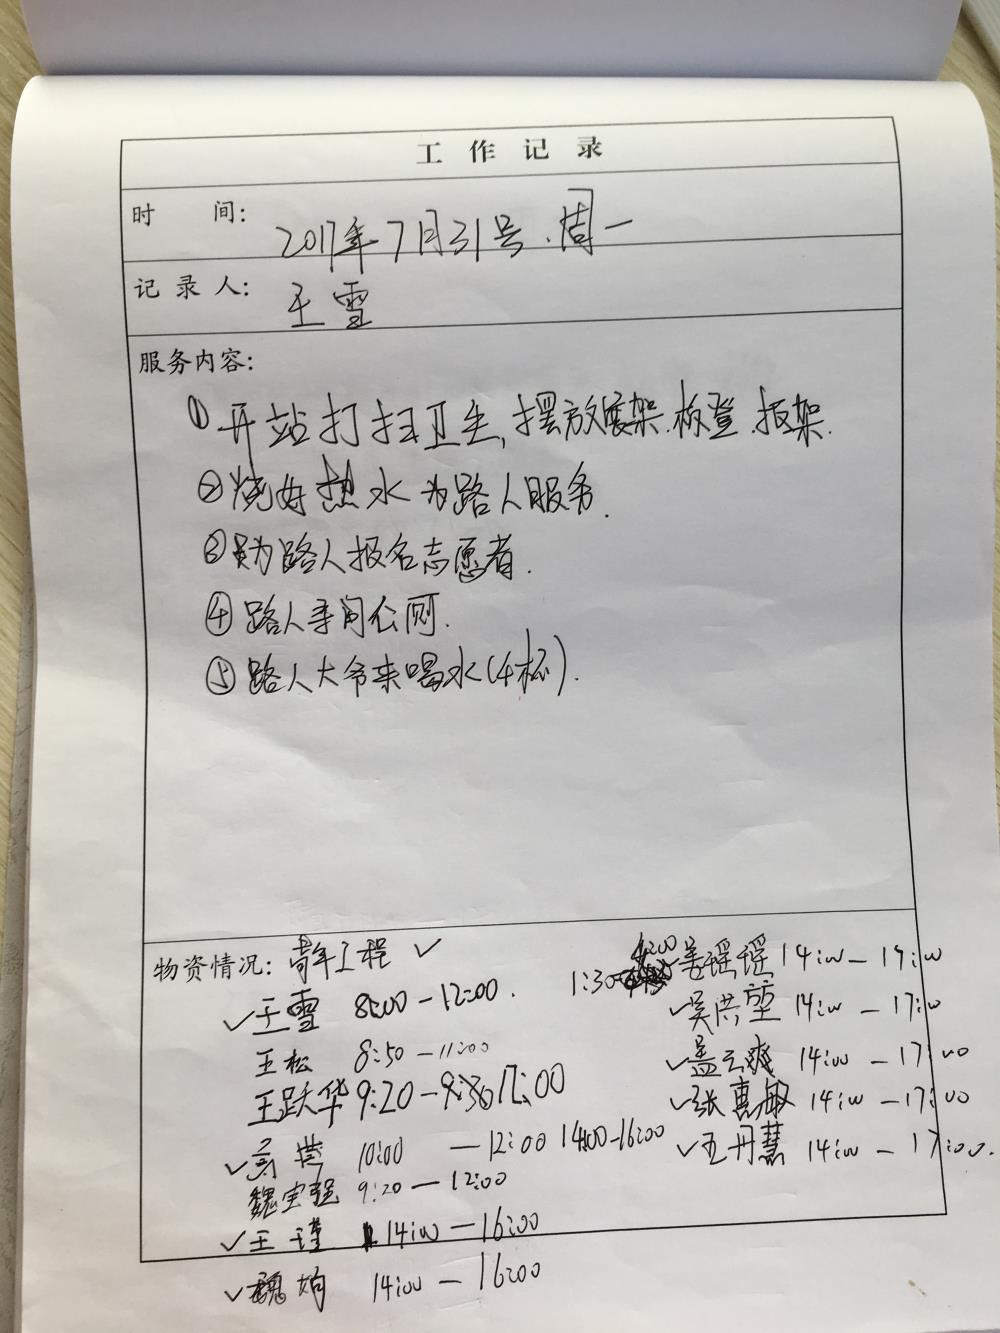 工作记录
时 间: 2017年7月31号.周一
记录人: 王雪
服务内容:
①开站打扫卫生,摆放展架.板登.报架.
②烧好热水为路人服务.
③为路人报名志愿者.
④路人寻问公厕.
⑤路人大爷来喝水(4杯).
物资情况: 青年工程 ✓
✓王雪 8:00-12:00.
王松 8:50-11:00
王跃华 9:20-9:30 12:00
10:00 -12:00 14:00-16:00
魏宝强 9:20-12:00
✓王瑾 14:00-16:00
✓魏 14:00-16:00
1:30 姜瑶瑶 14:00-17:00
✓吴洪 14:00-17:00
✓孟云爽 14:00-17:00
✓张惠敏 14:00-17:00
✓王丹慧 14:00-17:00.